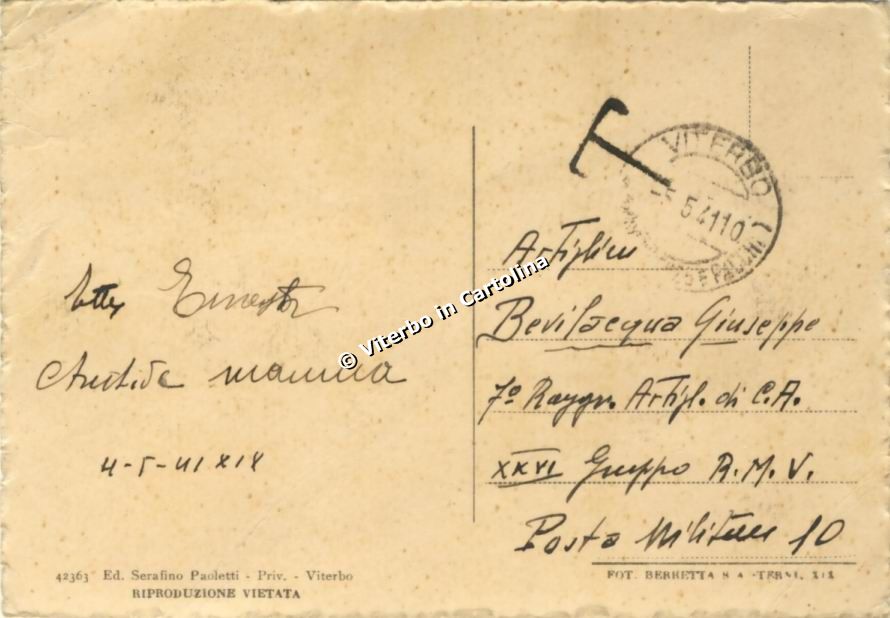 T
VITERBO
5 41 10
Artiglier
Bevilacqua Giuseppe
7º Raggr. Artigl. di C.A.
XXVI Gruppo R. M. V.
Posta Militare 10
Ernesto
mamma
4-5-41 XIX
© Viterbo in Cartolina
42363 Ed. Serafino Paoletti - Priv. - Viterbo
RIPRODUZIONE VIETATA
FOT. BERRETTA S A - TERNI, XIX